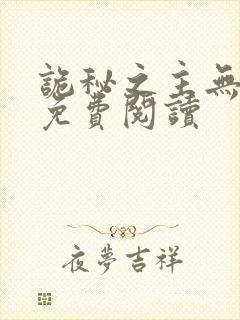 詭秘之主無
免費閱讀
夜夢吉祥